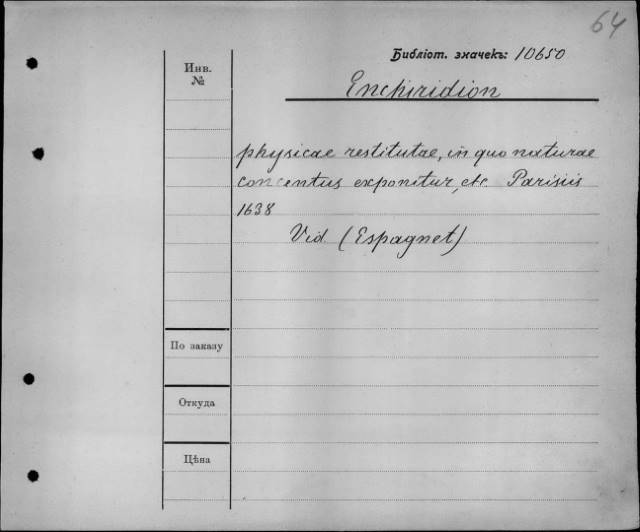 64
Библіот. значекъ: 10650
Инв.
№
Enchiridion
physicae restitutae, in quo naturae
concentus exponitur, etc. Parisiis
1638
Vid. (Espagnet)
По заказу
Откуда
Цѣна